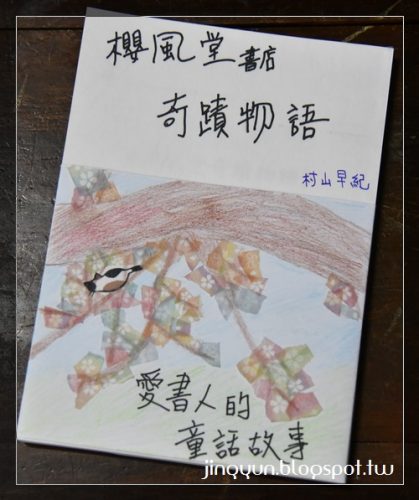 櫻風堂書店
奇蹟物語
村山早紀
愛書人的
童話故事
jinqyun.blogspot.tw